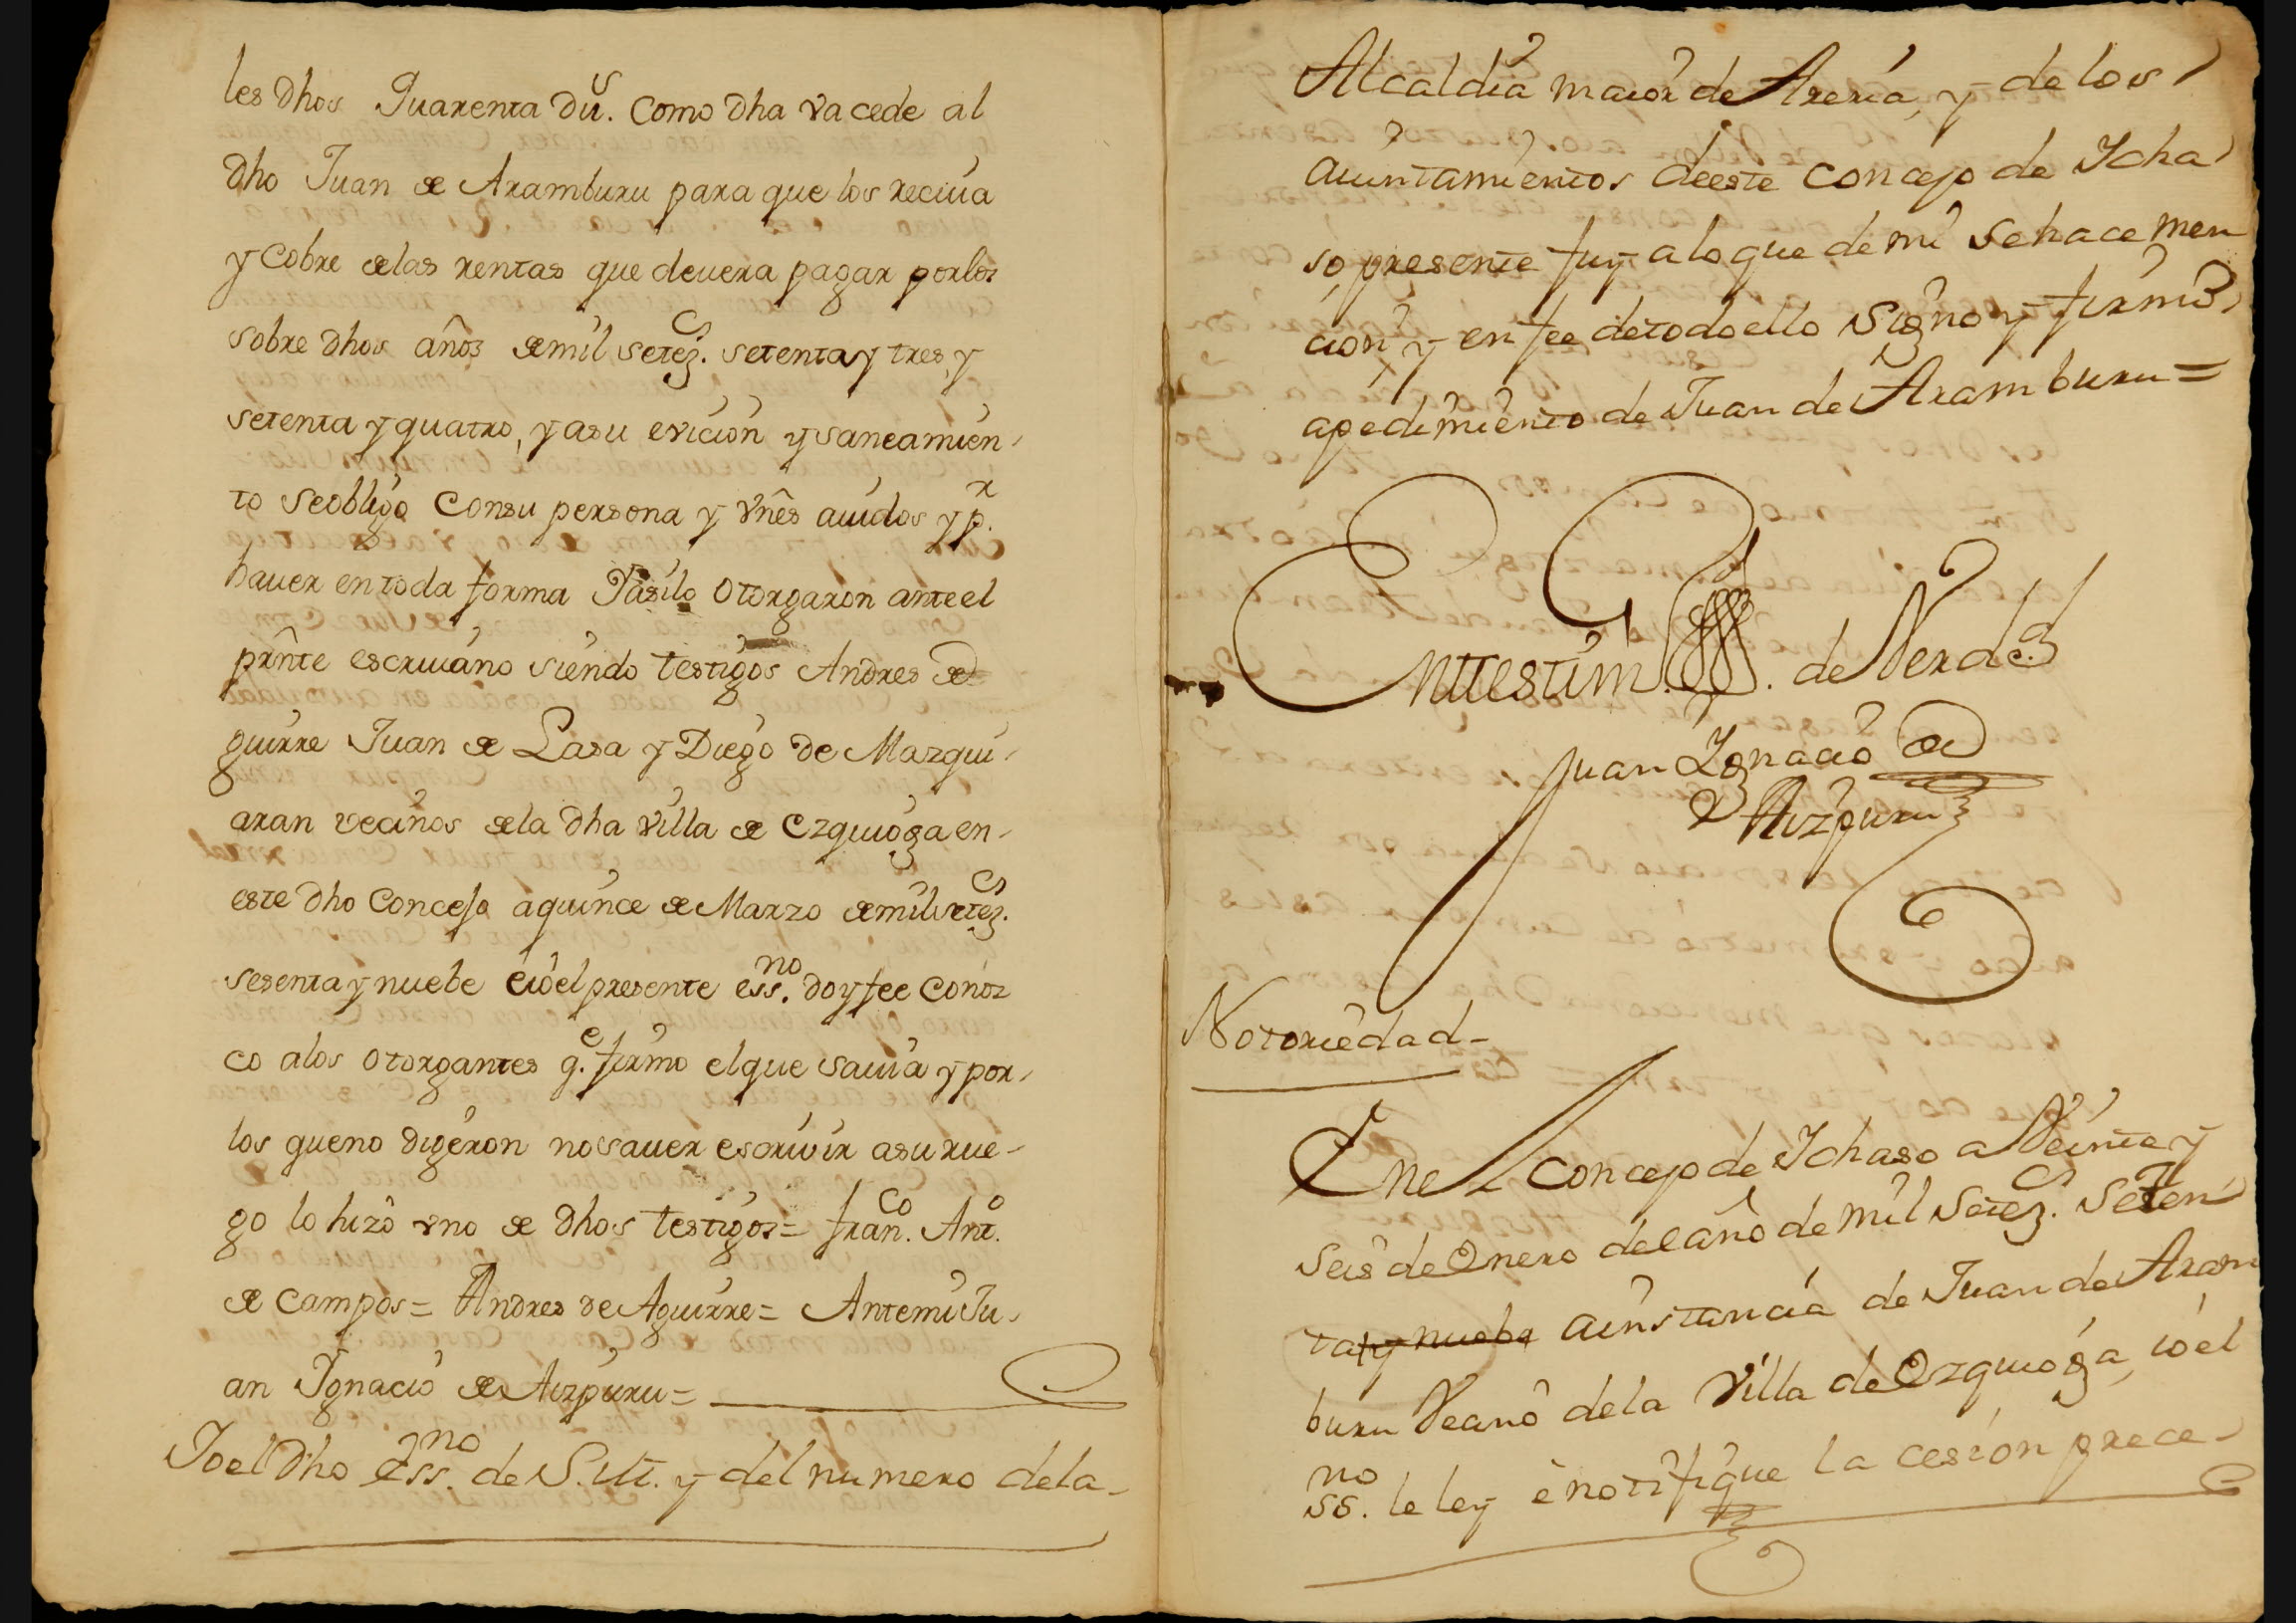 les dhos Quarenta du.s como dha va cede al
dho Juan de Aramburu para que los reciua
y cobre de las rentas que deuera pagar por los
sobre dhos años de mil setez.s setenta y tres, y
setenta y quatro, y a su evicion y saneamien-
to se obligo con su persona y vnês auidos y p.r
hauer en toda forma Y asi lo otorgaron ante el
prînte escriuano siendo testigos Andres de
guirre Juan de Lasa y Diego de Mazqui-
aran vecinos de la dha villa de Ezquioga en-
este dho Concejo a quince de Marzo de mil setez.s
sesenta y nuebe e io el presente ess.no doy fee conoz
co a los otorgantes q.e firmo el que sauia y por-
los que no digeron no sauer escriuir a su rue-
go lo hizo vno de dhos testigos= fran.co Ant.o
de Campos= Andres de Aguirre= Ante mi Ju-
an Ygnacio de Aizpuru=
Io el dho ess.no de S.M. y del numero de la-
Alcaldia maior de Areria, y de los
aiuntamientos de este Concejo de Icha
so, presente fuy a lo que de mi se hace men
cion, y en fee de todo ello signo y firmo
a pedimiento de Juan de Aramburu=
En testim.o de Verdad
Juan Ignacio de
Aizpuru
Notoriedad-
En el Concejo de Ichaso a Veinte y
seis de Enero del año de mil setez.s seten
ta y nuebe a instancia de Juan de Aram
buru Vecino de la Villa de Ezquioga, io el
ss.no le ley e notifique la cesion prece-